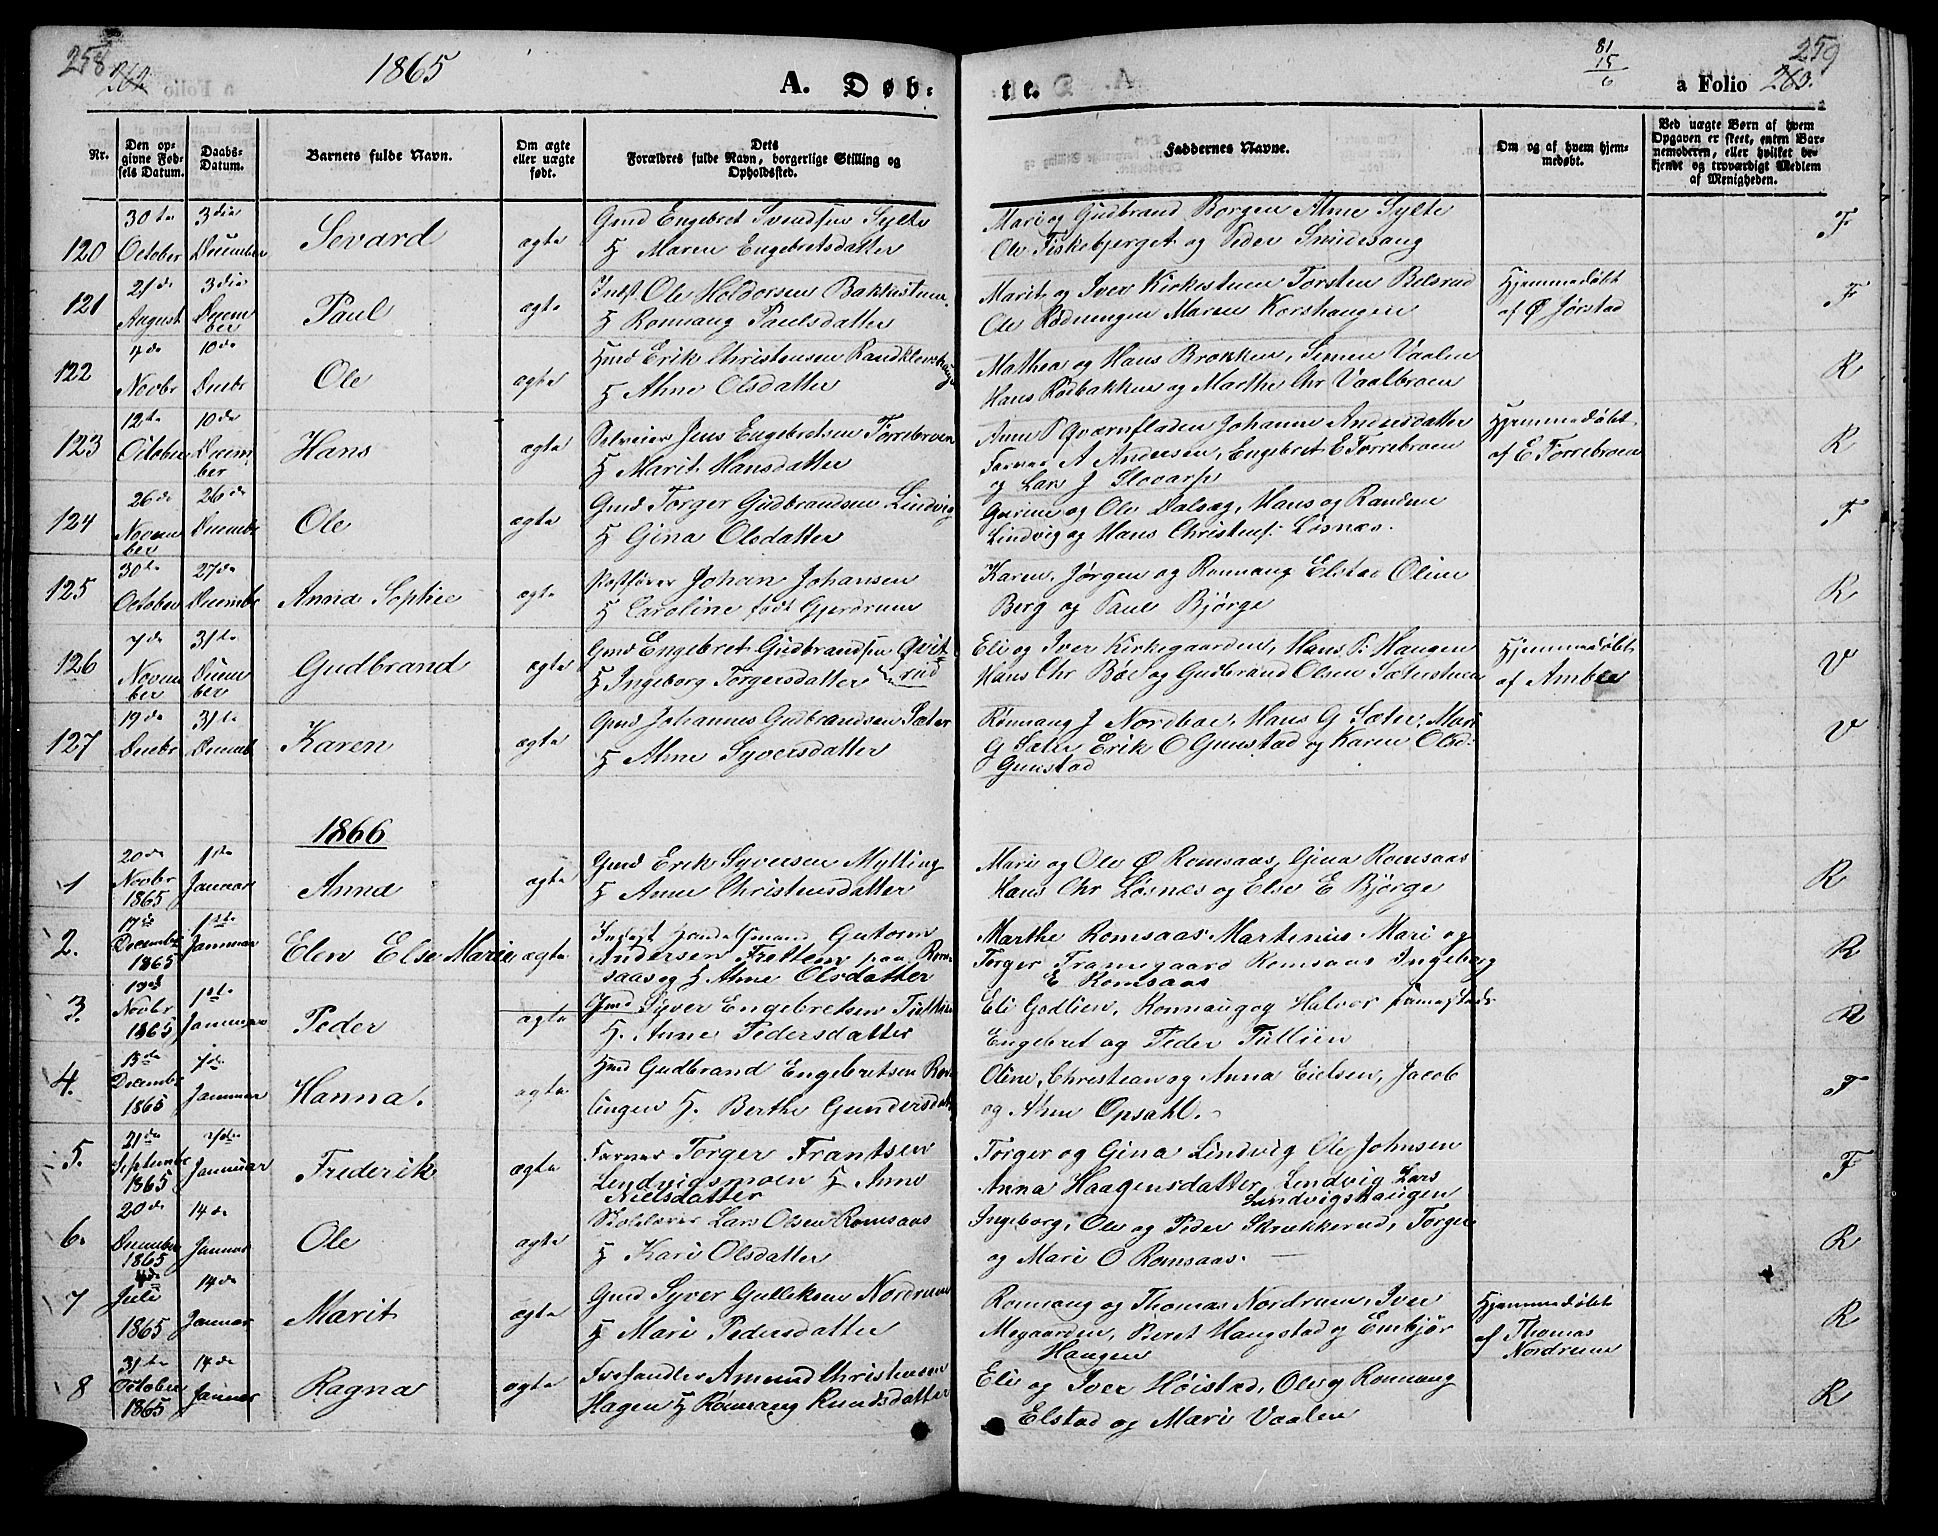 258
262
1865
A. Døb-
te.
81
15
6
259
a Folio 263.
Nr.
Den op-
givne Fød-
sels Datum.
Daabs-
Datum.
Barnets fulde Navn.
Om ægte
eller uægte
født.
Dets
Forældres fulde Navn, borgerlige Stilling og
Opholdssted.
Faddernes Navne.
Om og af hvem hjem-
medøbt.
Ved uægte Børn af hvem
Opgaven er skeet, enten Bar-
nemoderen, eller hvilket be-
kjendt og troværdigt Medlem
af Menigheden.
120
30te
October
3die
December
Sevard
ægte
Gmd Engebret Svendsen Sylte
H Maren Engebretsdatter
Mari og Gudbrand Borgen Ahne Sylte
Ole Fiskebjerget og Peder Smidesang
F
121
21de
August
3die
Decem
ber
Paul
ægte
Inds Ole Holdorsen Bakkestuen
H Ronnaug Paulsdatter
Marit og Iver Kirkestuen Torsten Belsrud
Ole Rødningen Maren Korshaugen
Hjemmedøbt
af Ø Jørstad
F
122
4de
Novbr
10de
Decbr
Ole
ægte
Hmd Erik Christensen Randklevshaugen
H Ahne Olsdatter
Mathea og Hans Brokken, Simen Vaalen
Hans Rødbakken og Marthe Chr Vaalbroen
R
123
12te
October
10de
Decem
ber
Hans
ægte
Selveier Jens Engebretsen Forrebroen
H Marit Hansdatter
Anne P Qværnfladen Johanne Andersdatter
Farver A Andersen, Engebret E Forrebroen
og Lars J Slovarp
Hjemmedøbt
af E Forrebroen
R
124
26de
Novem
ber
26de
Decembr
Ole
ægte
Gmd Torger Gudbrandsen Lindvig
H Gina Olsdatter
Gurine og Ole Dalseg, Hans og Randine
Lindvig og Hans Christens: Losnæs.
F
125
30te
October
27de
Decembr
Anna Sophie
ægte
Postfører Johan Johansen
H Caroline født Gjerdrum
Karen, Jørgen og Ronnaug Elstad Oline
Berg og Paul Bjørge
R
126
7de
Novem
ber
31te
Decem
ber
Gudbrand
ægte
Gmd Engebret Gudbrandsen Qvit
rud
H Ingeborg Torgersdatter
Eli og Iver Kirkegaarden, Hans P: Haugen
Hans Chr Bøe og Gudbrand Olsen Sæterstuen
Hjemmedøbt
af Amble
V
127
19de
Decbr
31te
Decemb
Karen
ægte
Gmd Johannes Gudbrandsen Sæter
H Ahne Syversdatter
Rønnaug J Nordboe, Hans G Sæter, Mari
G Sæter Erik O Gunstad og Karen Olsd:
Gunstad
V
1866
1
20de
Novbr
1865
1ste
Januar
Anna
ægte
Gmd Erik Syversen Mytting
H Anne Christensdatter
Mari og Ole Ø Romsaas, Gina Romsaas
Hans Chr Losnæs og Else E Bjørge
R
2.
17de
Decembr
1865
1ste
Januar
Elen Else Marie
ægte
Inderst Handelsmand Gutorm
Andersen Fretten paa Rom
saas og H Ahne Olsdatter
Marthe Romsaas Martinus Mari og
Torger Framegaard Romsaas Ingeborg
E Romsaas
R
3.
Novbr
1865
1ste
Januar
Peder
ægte
Gmd Syver Engebretsen Tullien
H. Anne Pedersdatter
Eli Godlien, Ronnaug og Halvor
Engebret og Peder Tullien
R
4.
15de
Decembr
1865
7de
Januar
Hanna.
ægte
Hmd Gudbrand Engebretsen Rov
lingen H. Berthe Gundersdatter
Oline, Christian og Anna Eielsen, Jacob
og Ahne Opsahl.
F
5.
21de
Septembr
1865
7de
Januar
Frederik
ægte
Farver Torger Frantsen
Lindvigsmoen H Anne
Nielsdatter
Torger og Gina Lindvig Ole Johnsen
Anna Haagensdatter Lindvig Lars
Lindvigshaugen
F
6.
20de
December
1865
14de
Januar
Ole
ægte
Skolelærer Lars Olsen Romsaas
H Kari Olsdatter
Ingeborg, Ole og Peder Skrækkerud, Torger
og Mari O Romsaas.
R
7
4de
Juli
1865
14de
Januar
Marit
ægte
Gmd Syver Gulliksen Nordrum
H Mari Pedersdatter
Ronnaug og Thomas Nordrum, Iver
Megaarden, Beret Haugstad og Embjør
Haugen
Hjemmedøbt
af Thomas
Nordrum
R
8
31te
October
1865
14de
Januar
Ragna
ægte
Frøhandler Amund Christensen
Hagen H Rønnaug Knudsdatter
Eli og Iver Høistad, Ole og Ronnaug
Elstad og Mari Vaalen
R